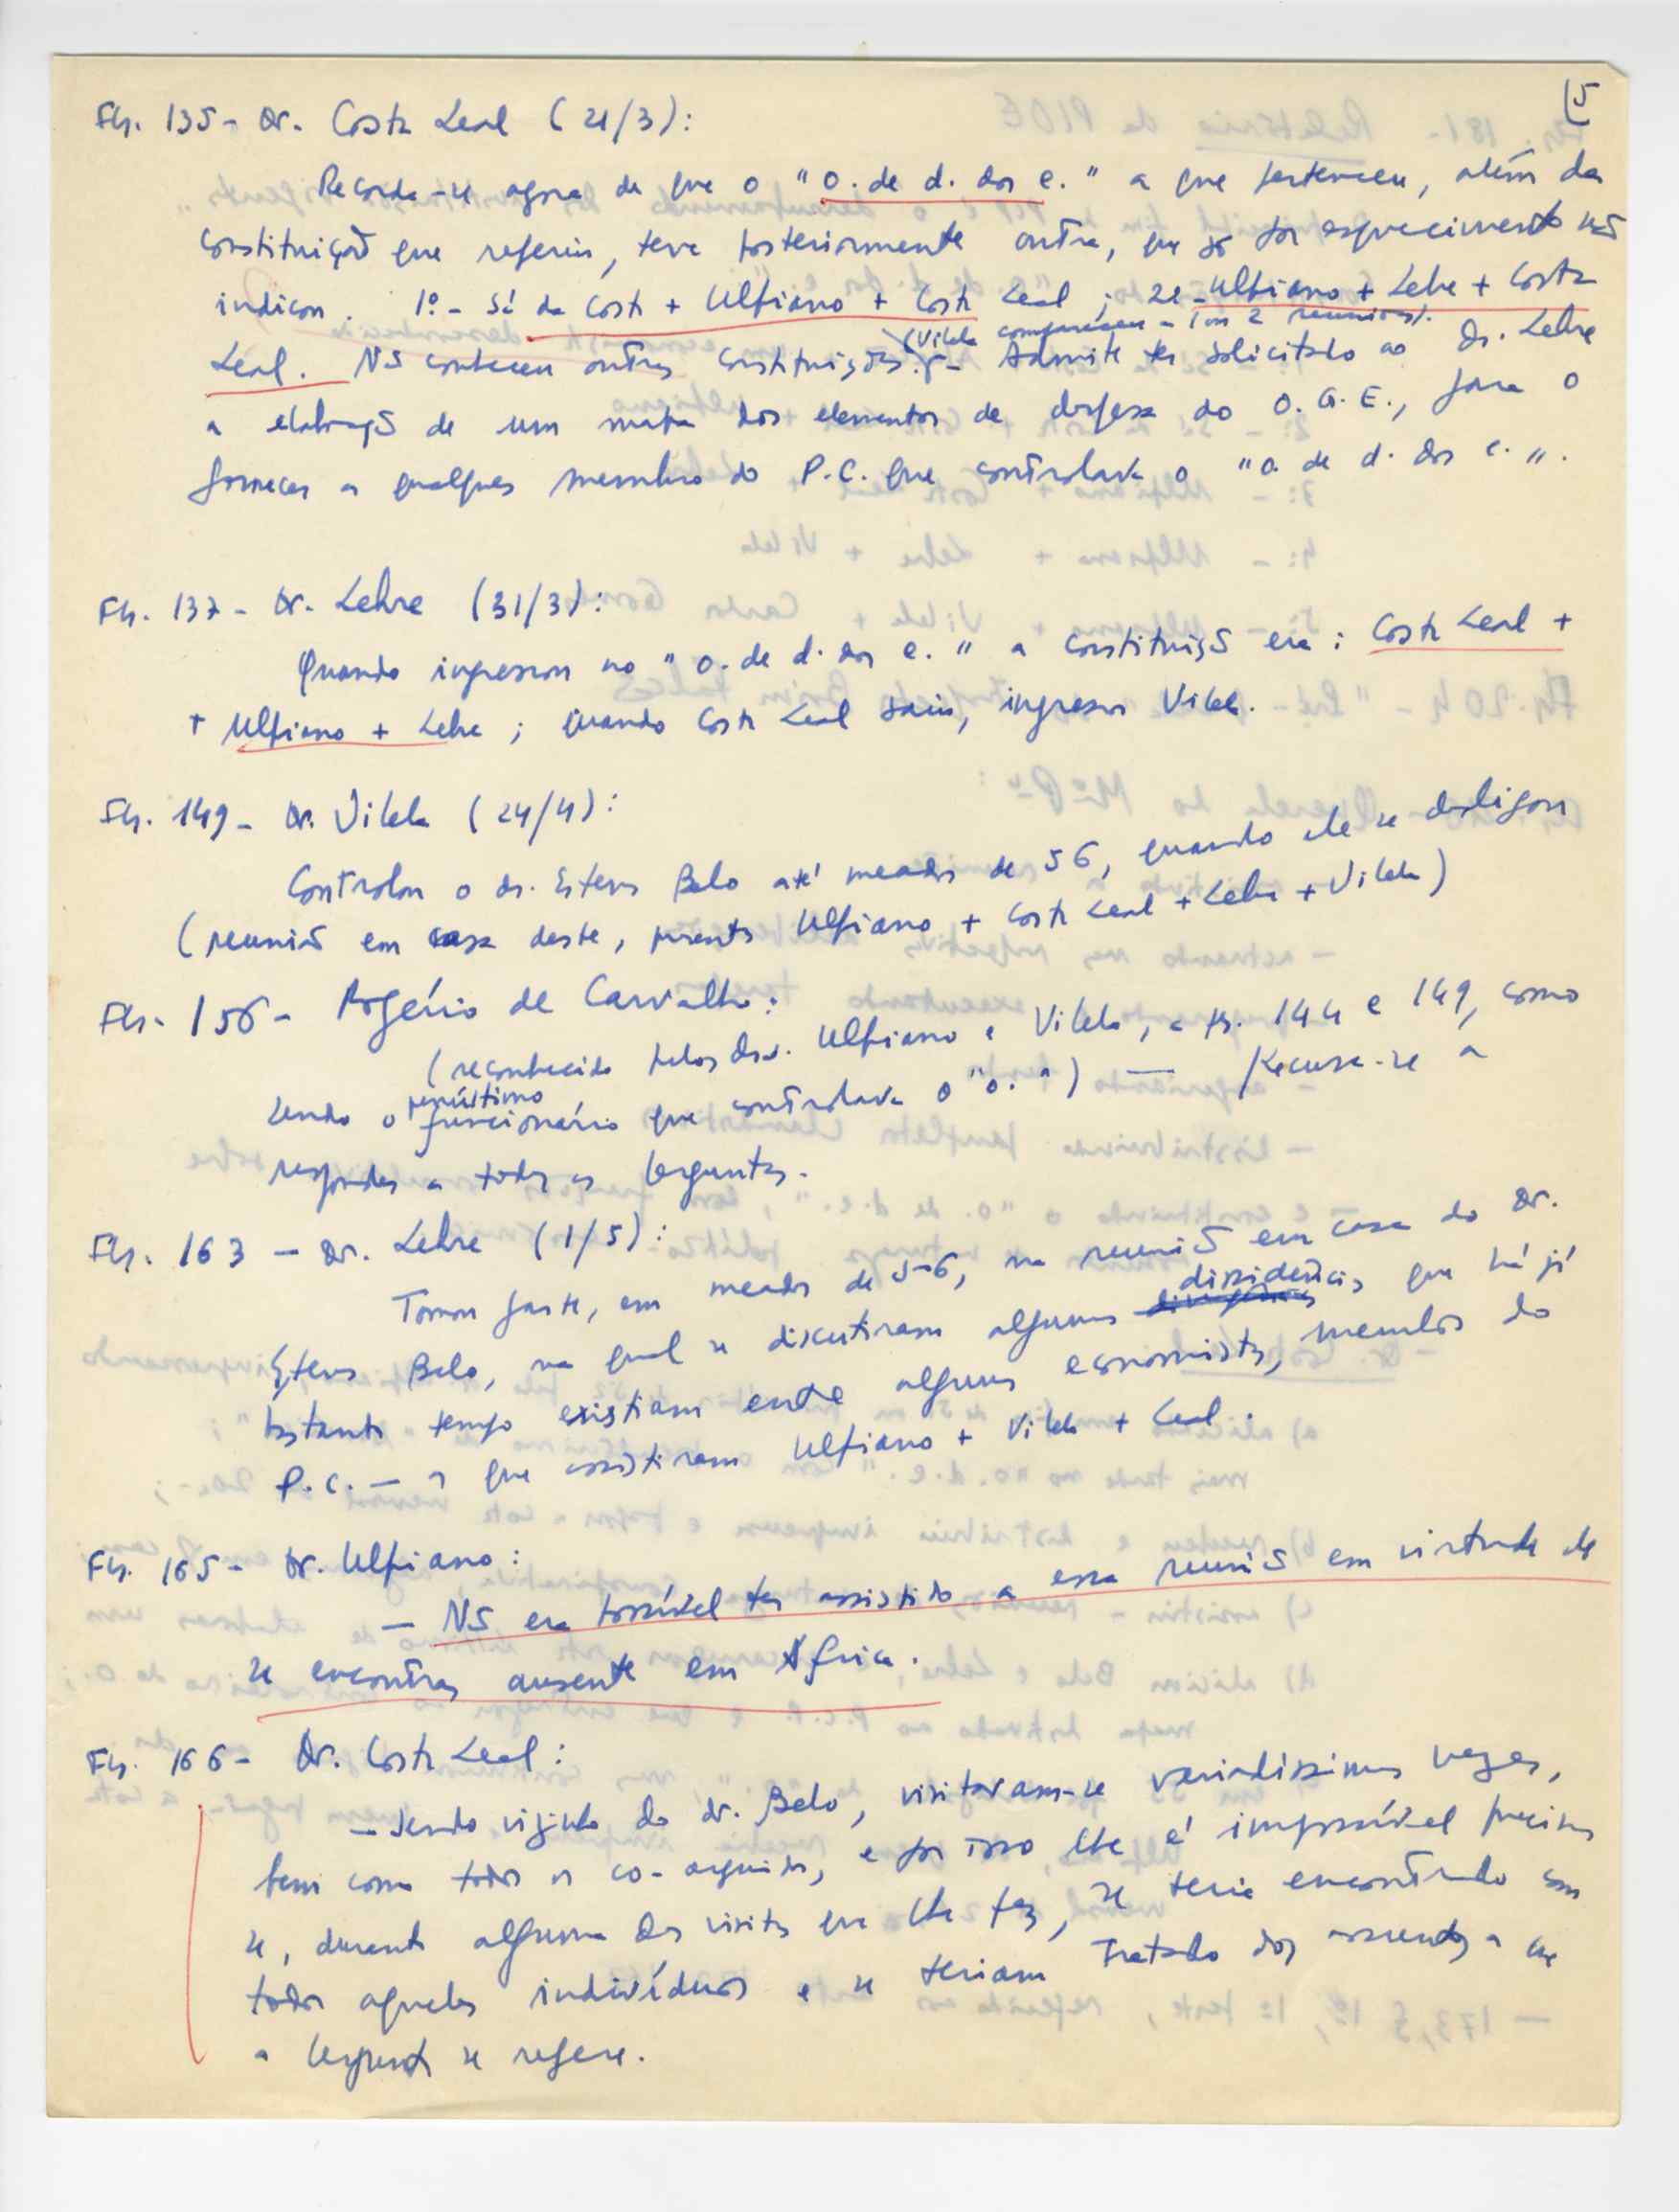 (5
Fls. 135 - Dr. Costa Leal (21/3):
Recorda-se agora de que o "o. de d. dos e." a que pertenceu, além da
constituição que referiu, teve posteriormente outra, que só por esquecimento não
indicou. 1º - Sá da Costa + Ulpiano + Costa Leal ; 2º - Ulpiano + Lebre + Costa
(Vilela compareceu a 1 ou 2 reuniões).
Leal. Não conheceu outras constituições. - Admite ter solicitado ao Dr. Lebre
a elaboração de um mapa dos elementos de defesa do O.G.E., para o
fornecer a qualquer membro do P.C. que controlava o "o. de d. dos e.".
Fls. 137 - Dr. Lebre (31/3):
Quando ingressou no "o. de d. dos e." a constituição era: Costa Leal +
+ Ulpiano + Lebre ; quando Costa Leal saiu, ingressou Vilela.
Fls. 149 - Dr. Vilela (24/4):
Controlou o dr. Esteves Belo até meados de 56, quando ele se desligou
(reunião em casa deste, presentes Ulpiano + Costa Leal + Lebre + Vilela)
Fls. 156 - Rogério de Carvalho:
(reconhecido pelos drs. Ulpiano e Vilela, a fls. 144 e 149, como
sendo o penúltimo funcionário que controlava o "o.") — Recusa-se a
responder a todas as perguntas.
Fls. 163 - Dr. Lebre (1/5):
Tomou parte, em meados de 56, na reunião em casa do Dr.
Esteves Belo, na qual se discutiram algumas dissidências que há já
bastante tempo existiam entre alguns economistas, membros do
P.C. — a que assistiram Ulpiano + Vilela + Leal.
Fls. 165 - Dr. Ulpiano:
— Não era possível ter assistido a essa reunião em virtude de
se encontrar ausente em África.
Fls. 166 - Dr. Costa Leal:
— Sendo vizinho do dr. Belo, visitavam-se variadíssimas vezes,
bem como todos os co-arguidos, e por isso lhe é impossível precisar
se, durante alguma das visitas que lhe fez, se teria encontrado com
todos aqueles indivíduos e se teriam tratado dos assuntos a que
a pergunta se refere.